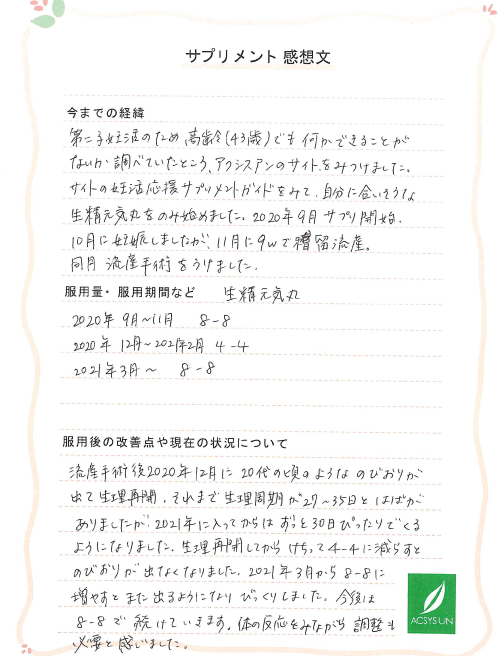 サプリメント 感想文
今までの経緯
第二子妊活のため 高齢(43歳)でも 何かできることが
ないか 調べていたところ、アクシスアンのサイトをみつけました。
サイトの妊活応援サプリメントガイドをみて、自分に合いそうな
生精元気丸をのみ始めました。2020年9月 サプリ開始、
10月に妊娠しましたが、11月に9wで稽留流産。
同月 流産手術をうけました。
服用量・服用期間など 生精元気丸
2020年 9月〜11月 8-8
2020年 12月〜2021年2月 4-4
2021年3月〜 8-8
服用後の改善点や現在の状況について
流産手術後2020年12月に 20代の頃のような のびおりが
出て生理再開、それまで生理周期が27〜35日とはばが
ありましたが、2021年に入ってからは ずっと30日ぴったりでくる
ようになりました。生理再開してから けちって4-4に減らすと
のびおりが出なくなりました。2021年3月から 8-8に
増やすと また出るようになり びっくりしました。今後は
8-8で 続けていきます。体の反応をみながら 調整も
必要と感じました。
ACSYS UN